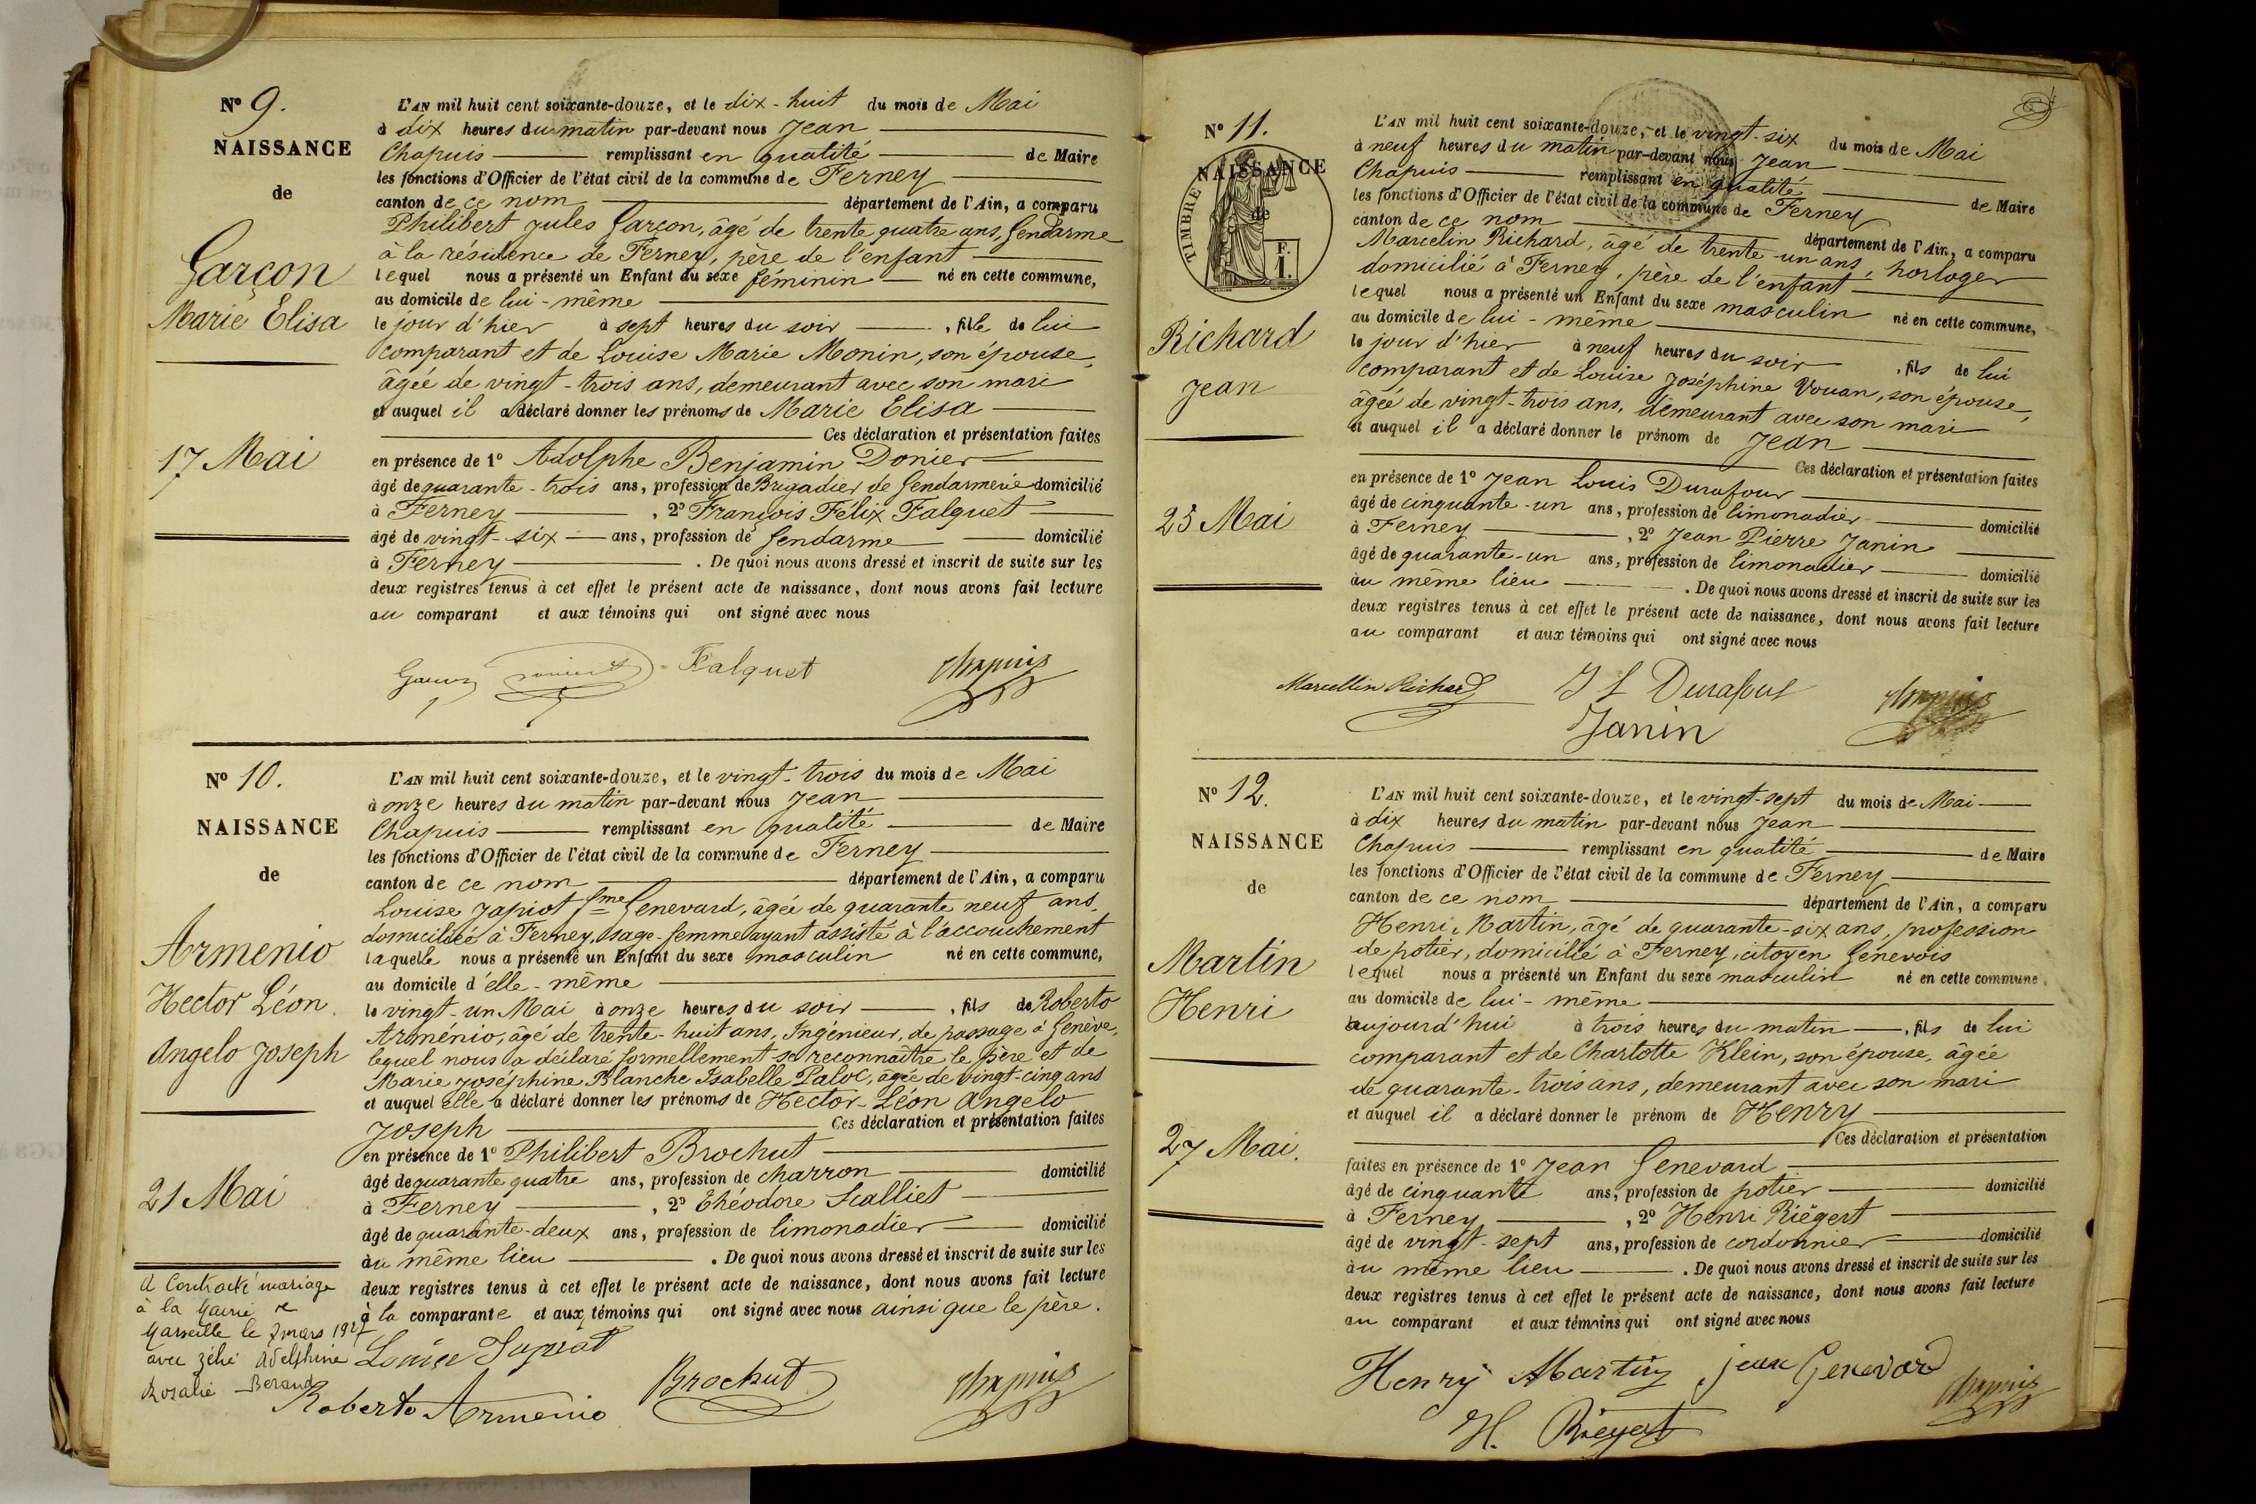 N° 9.
NAISSANCE
de
Garçon
Marie Elisa
17 Mai
L'AN mil huit cent soixante-douze, et le dix-huit du mois de Mai
à dix heures du matin par-devant nous Jean
Chapuis remplissant en qualité de Maire
les fonctions d'Officier de l'état civil de la commune de Ferney
canton de ce nom département de l'Ain, a comparu
Philibert Jules Garçon, âgé de trente quatre ans, Gendarme
à la résidence de Ferney, père de l'enfant
lequel nous a présenté un Enfant du sexe féminin né en cette commune,
au domicile de lui-même
le jour d'hier à sept heures du soir, fille de lui
comparant et de Louise Marie Monin, son épouse,
âgée de vingt-trois ans, demeurant avec son mari
et auquel il a déclaré donner les prénoms de Marie Elisa
Ces déclaration et présentation faites
en présence de 1° Adolphe Benjamin Donier
âgé de quarante-trois ans, profession de Brigadier de Gendarmerie domicilié
à Ferney, 2° François Félix Falquet
âgé de vingt-six ans, profession de Gendarme domicilié
à Ferney. De quoi nous avons dressé et inscrit de suite sur les
deux registres tenus à cet effet le présent acte de naissance, dont nous avons fait lecture
au comparant et aux témoins qui ont signé avec nous
Falquet Chapuis
N° 10.
NAISSANCE
de
Armenio
Hector Léon
Angelo Joseph
21 Mai
A Contracté mariage
à la Mairie de
Marseille le 7 mars 1927
avec Zélie Adelphine
Rosalie Berand
L'AN mil huit cent soixante-douze, et le vingt-trois du mois de Mai
à onze heures du matin par-devant nous Jean
Chapuis remplissant en qualité de Maire
les fonctions d'Officier de l'état civil de la commune de Ferney
canton de ce nom département de l'Ain, a comparu
Louise Japiot fme Genevard, âgée de quarante neuf ans,
domiciliée à Ferney, sage-femme ayant assisté à l'accouchement
laquelle nous a présenté un Enfant du sexe masculin né en cette commune,
au domicile d'elle-même
le vingt-un Mai à onze heures du soir, fils de Roberto
Arménio, âgé de trente-huit ans, Ingénieur, de passage à Genève,
lequel nous a déclaré formellement se reconnaître le père et de
Marie Joséphine Blanche Isabelle Paloc, âgée de vingt-cinq ans
et auquel elle a déclaré donner les prénoms de Hector-Léon Angelo
Joseph Ces déclaration et présentation faites
en présence de 1° Philibert Brochut
âgé de quarante quatre ans, profession de charron domicilié
à Ferney, 2° Théodore Scalliet
âgé de quarante-deux ans, profession de limonadier domicilié
au même lieu. De quoi nous avons dressé et inscrit de suite sur les
deux registres tenus à cet effet le présent acte de naissance, dont nous avons fait lecture
à la comparante et aux témoins qui ont signé avec nous ainsi que le père.
Louise Japiot
Roberto Armenio Brochut Chapuis
N° 11.
NAISSANCE
de
TIMBRE
F.
1.
Richard
Jean
25 Mai
L'AN mil huit cent soixante-douze, et le vingt-six du mois de Mai
à neuf heures du matin par-devant nous Jean
Chapuis remplissant en qualité de Maire
les fonctions d'Officier de l'état civil de la commune de Ferney
canton de ce nom département de l'Ain, a comparu
Marcelin Richard, âgé de trente-un ans, horloger
domicilié à Ferney, père de l'enfant
lequel nous a présenté un Enfant du sexe masculin né en cette commune,
au domicile de lui-même
le jour d'hier à neuf heures du soir, fils de lui
comparant et de Louise Joséphine Vouan, son épouse,
âgée de vingt-trois ans, demeurant avec son mari
et auquel il a déclaré donner le prénom de Jean
Ces déclaration et présentation faites
en présence de 1° Jean Louis Durafour
âgé de cinquante-un ans, profession de limonadier domicilié
à Ferney, 2° Jean Pierre Janin
âgé de quarante-un ans, profession de limonadier domicilié
au même lieu. De quoi nous avons dressé et inscrit de suite sur les
deux registres tenus à cet effet le présent acte de naissance, dont nous avons fait lecture
au comparant et aux témoins qui ont signé avec nous
Marcellin Richard J L Durafour Chapuis
Janin
N° 12.
NAISSANCE
de
Martin
Henri
27 Mai.
L'AN mil huit cent soixante-douze, et le vingt-sept du mois de Mai
à dix heures du matin par-devant nous Jean
Chapuis remplissant en qualité de Maire
les fonctions d'Officier de l'état civil de la commune de Ferney
canton de ce nom département de l'Ain, a comparu
Henri Martin, âgé de quarante-six ans, profession
de potier, domicilié à Ferney, citoyen Genevois
lequel nous a présenté un Enfant du sexe masculin né en cette commune,
au domicile de lui-même
aujourd'hui à trois heures du matin, fils de lui
comparant et de Charlotte Klein, son épouse, âgée
de quarante-trois ans, demeurant avec son mari
et auquel il a déclaré donner le prénom de Henry
Ces déclaration et présentation
faites en présence de 1° Jean Genevard
âgé de cinquante ans, profession de potier domicilié
à Ferney, 2° Henri Riégert
âgé de vingt-sept ans, profession de cordonnier domicilié
au même lieu. De quoi nous avons dressé et inscrit de suite sur les
deux registres tenus à cet effet le présent acte de naissance, dont nous avons fait lecture
au comparant et aux témoins qui ont signé avec nous
Henry Martin jean Genevard Chapuis
H. Riegert